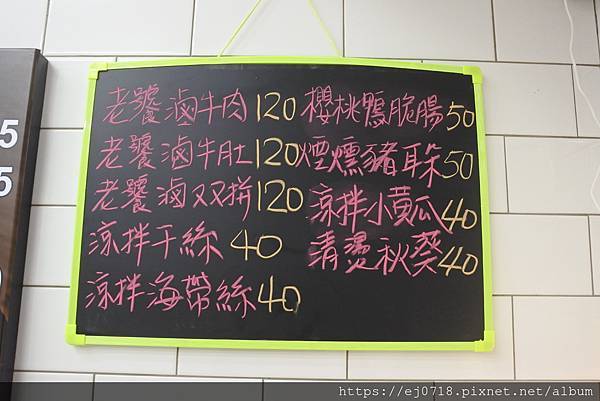 老饕滷牛肉 120
老饕滷牛肚 120
老饕滷双拼 120
涼拌干絲 40
涼拌海帶絲 40
櫻桃鴨脆腸 50
煙燻豬耳朵 50
涼拌小黃瓜 40
清燙秋葵 40
5
5
https://ej0718.pixnet.net/album